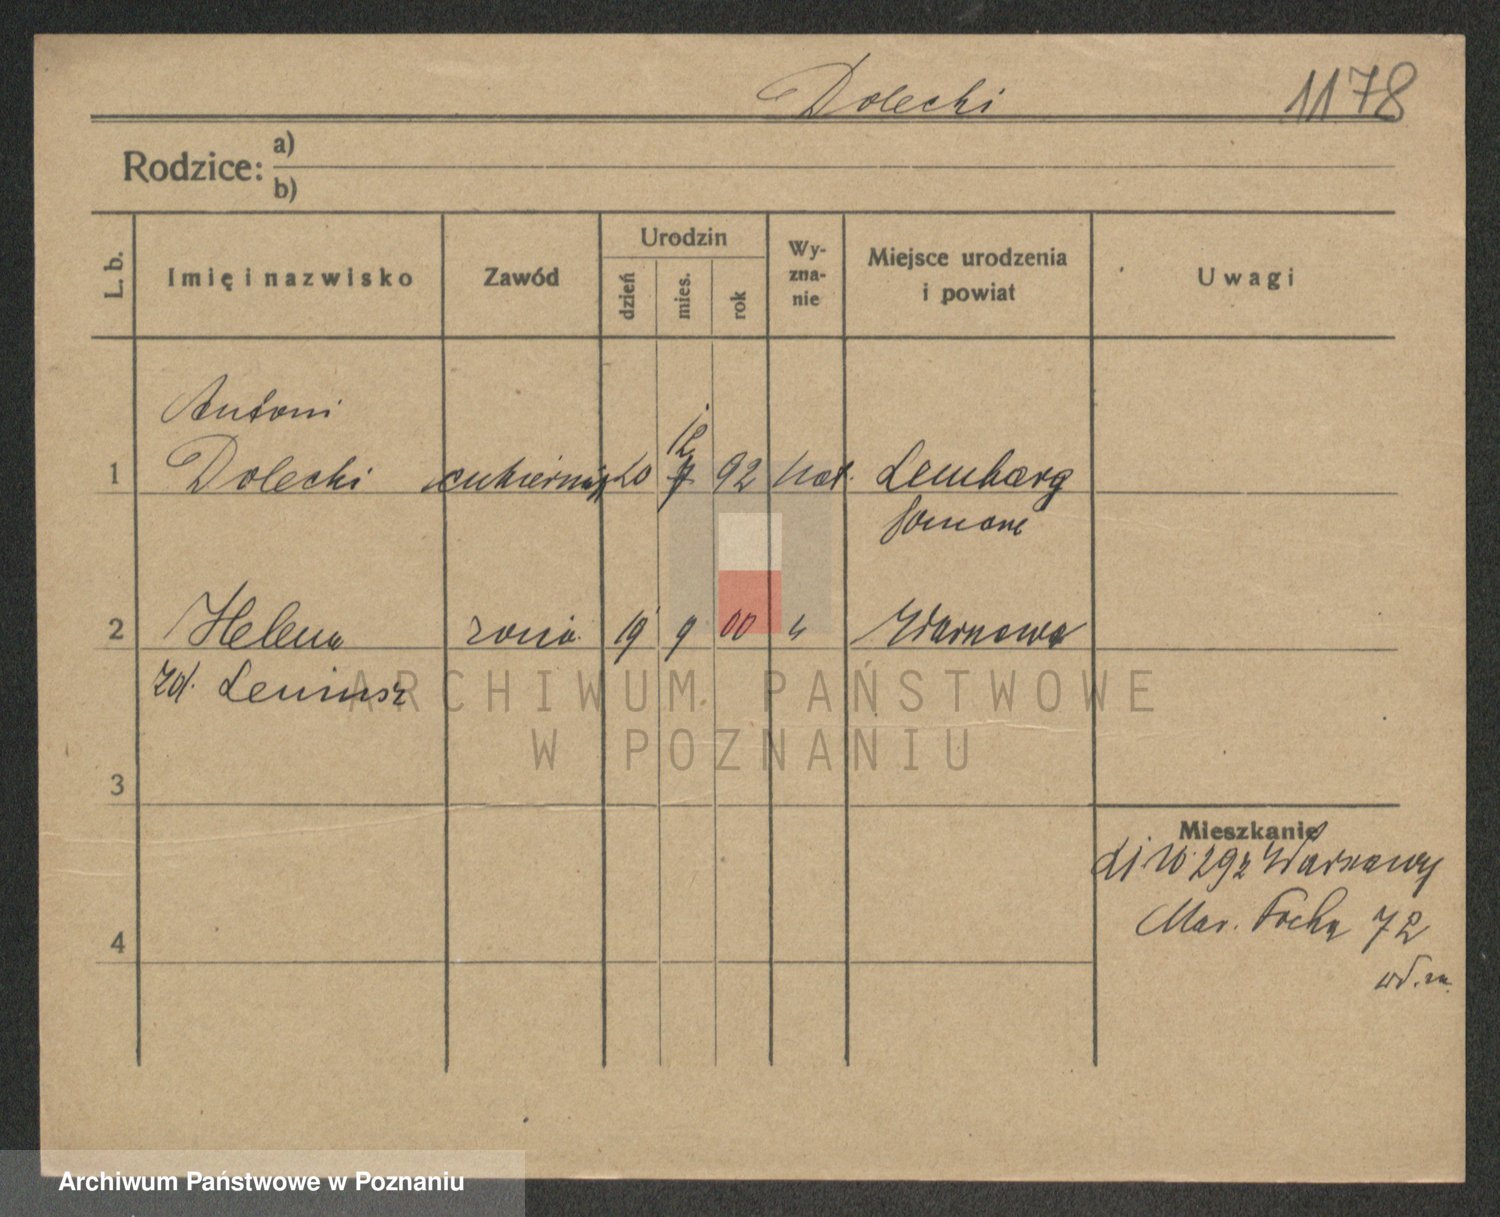 Dolecki 1178
Rodzice: a)
b)
L. b. Imię i nazwisko Zawód Urodzin dzień mies. rok Wy-zna-nie Miejsce urodzenia i powiat Uwagi
Antoni
1 Dolecki cukiernik 20 12 92 kat. Lemberg
2 Helena żona 19 9 00 " Warnowo
zd.
3
Mieszkanie
292
Mar. Focha 72
4
ARCHIWUM PAŃSTWOWE
W POZNANIU
Archiwum Państwowe w Poznaniu